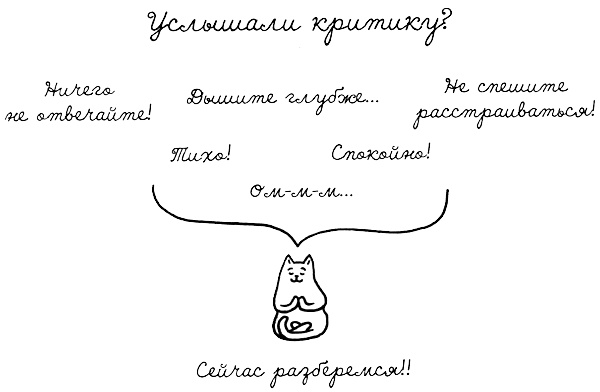 Услышали критику?
Ничего
не отвечайте!
Дышите глубже...
Не спешите
расстраиваться!
Тихо!
Спокойно!
Ом-м-м...
Сейчас разберемся!!